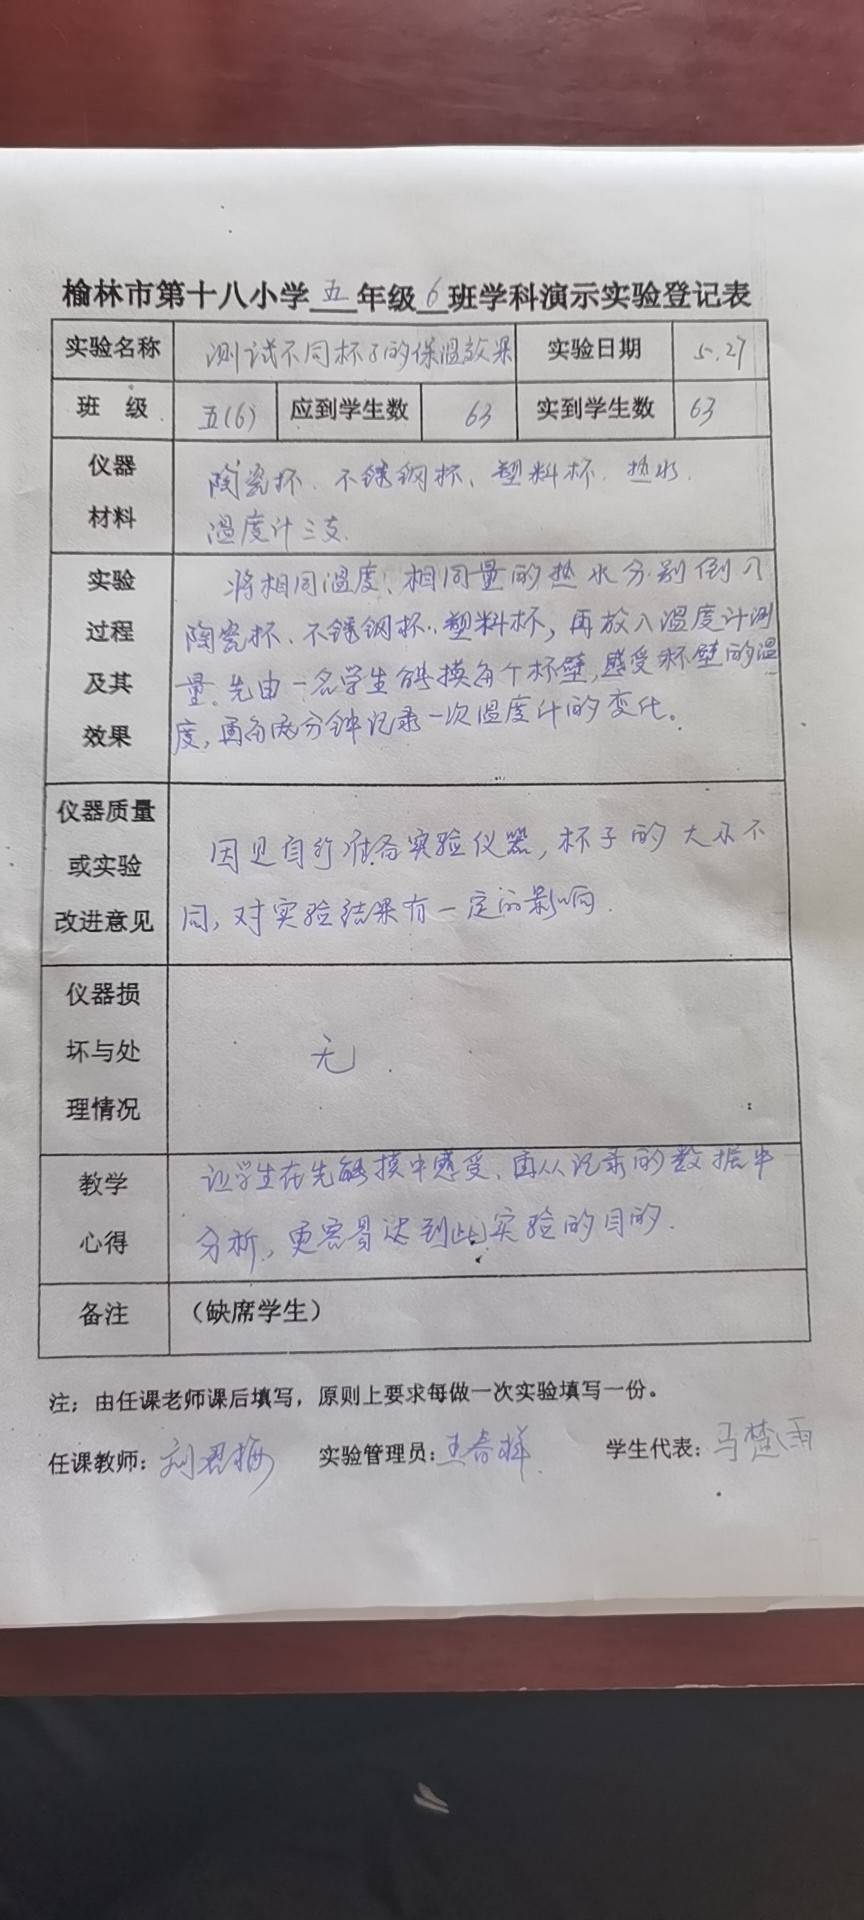 榆林市第十八小学五年级6班学科演示实验登记表
实验名称 测试不同杯子的保温效果 实验日期 5.27
班 级 五(6) 应到学生数 63 实到学生数 63
仪器 陶瓷杯、不锈钢杯、塑料杯、热水、
材料 温度计三支.
实验 将相同温度、相同量的热水分别倒入
过程 陶瓷杯、不锈钢杯、塑料杯,再放入温度计测
及其 量.先由一名学生触摸每个杯壁,感受杯壁的温
效果 度,再每两分钟记录一次温度计的变化。
仪器质量
或实验 因是自行准备实验仪器,杯子的大小不
改进意见 同,对实验结果有一定的影响.
仪器损
坏与处 无
理情况
教学 让学生在先触摸中感受,再从记录的数据中
心得 分析,更容易达到此实验的目的.
备注 (缺席学生)
注:由任课老师课后填写,原则上要求每做一次实验填写一份。
任课教师:刘君梅 实验管理员:王春祥 学生代表:马楚雨